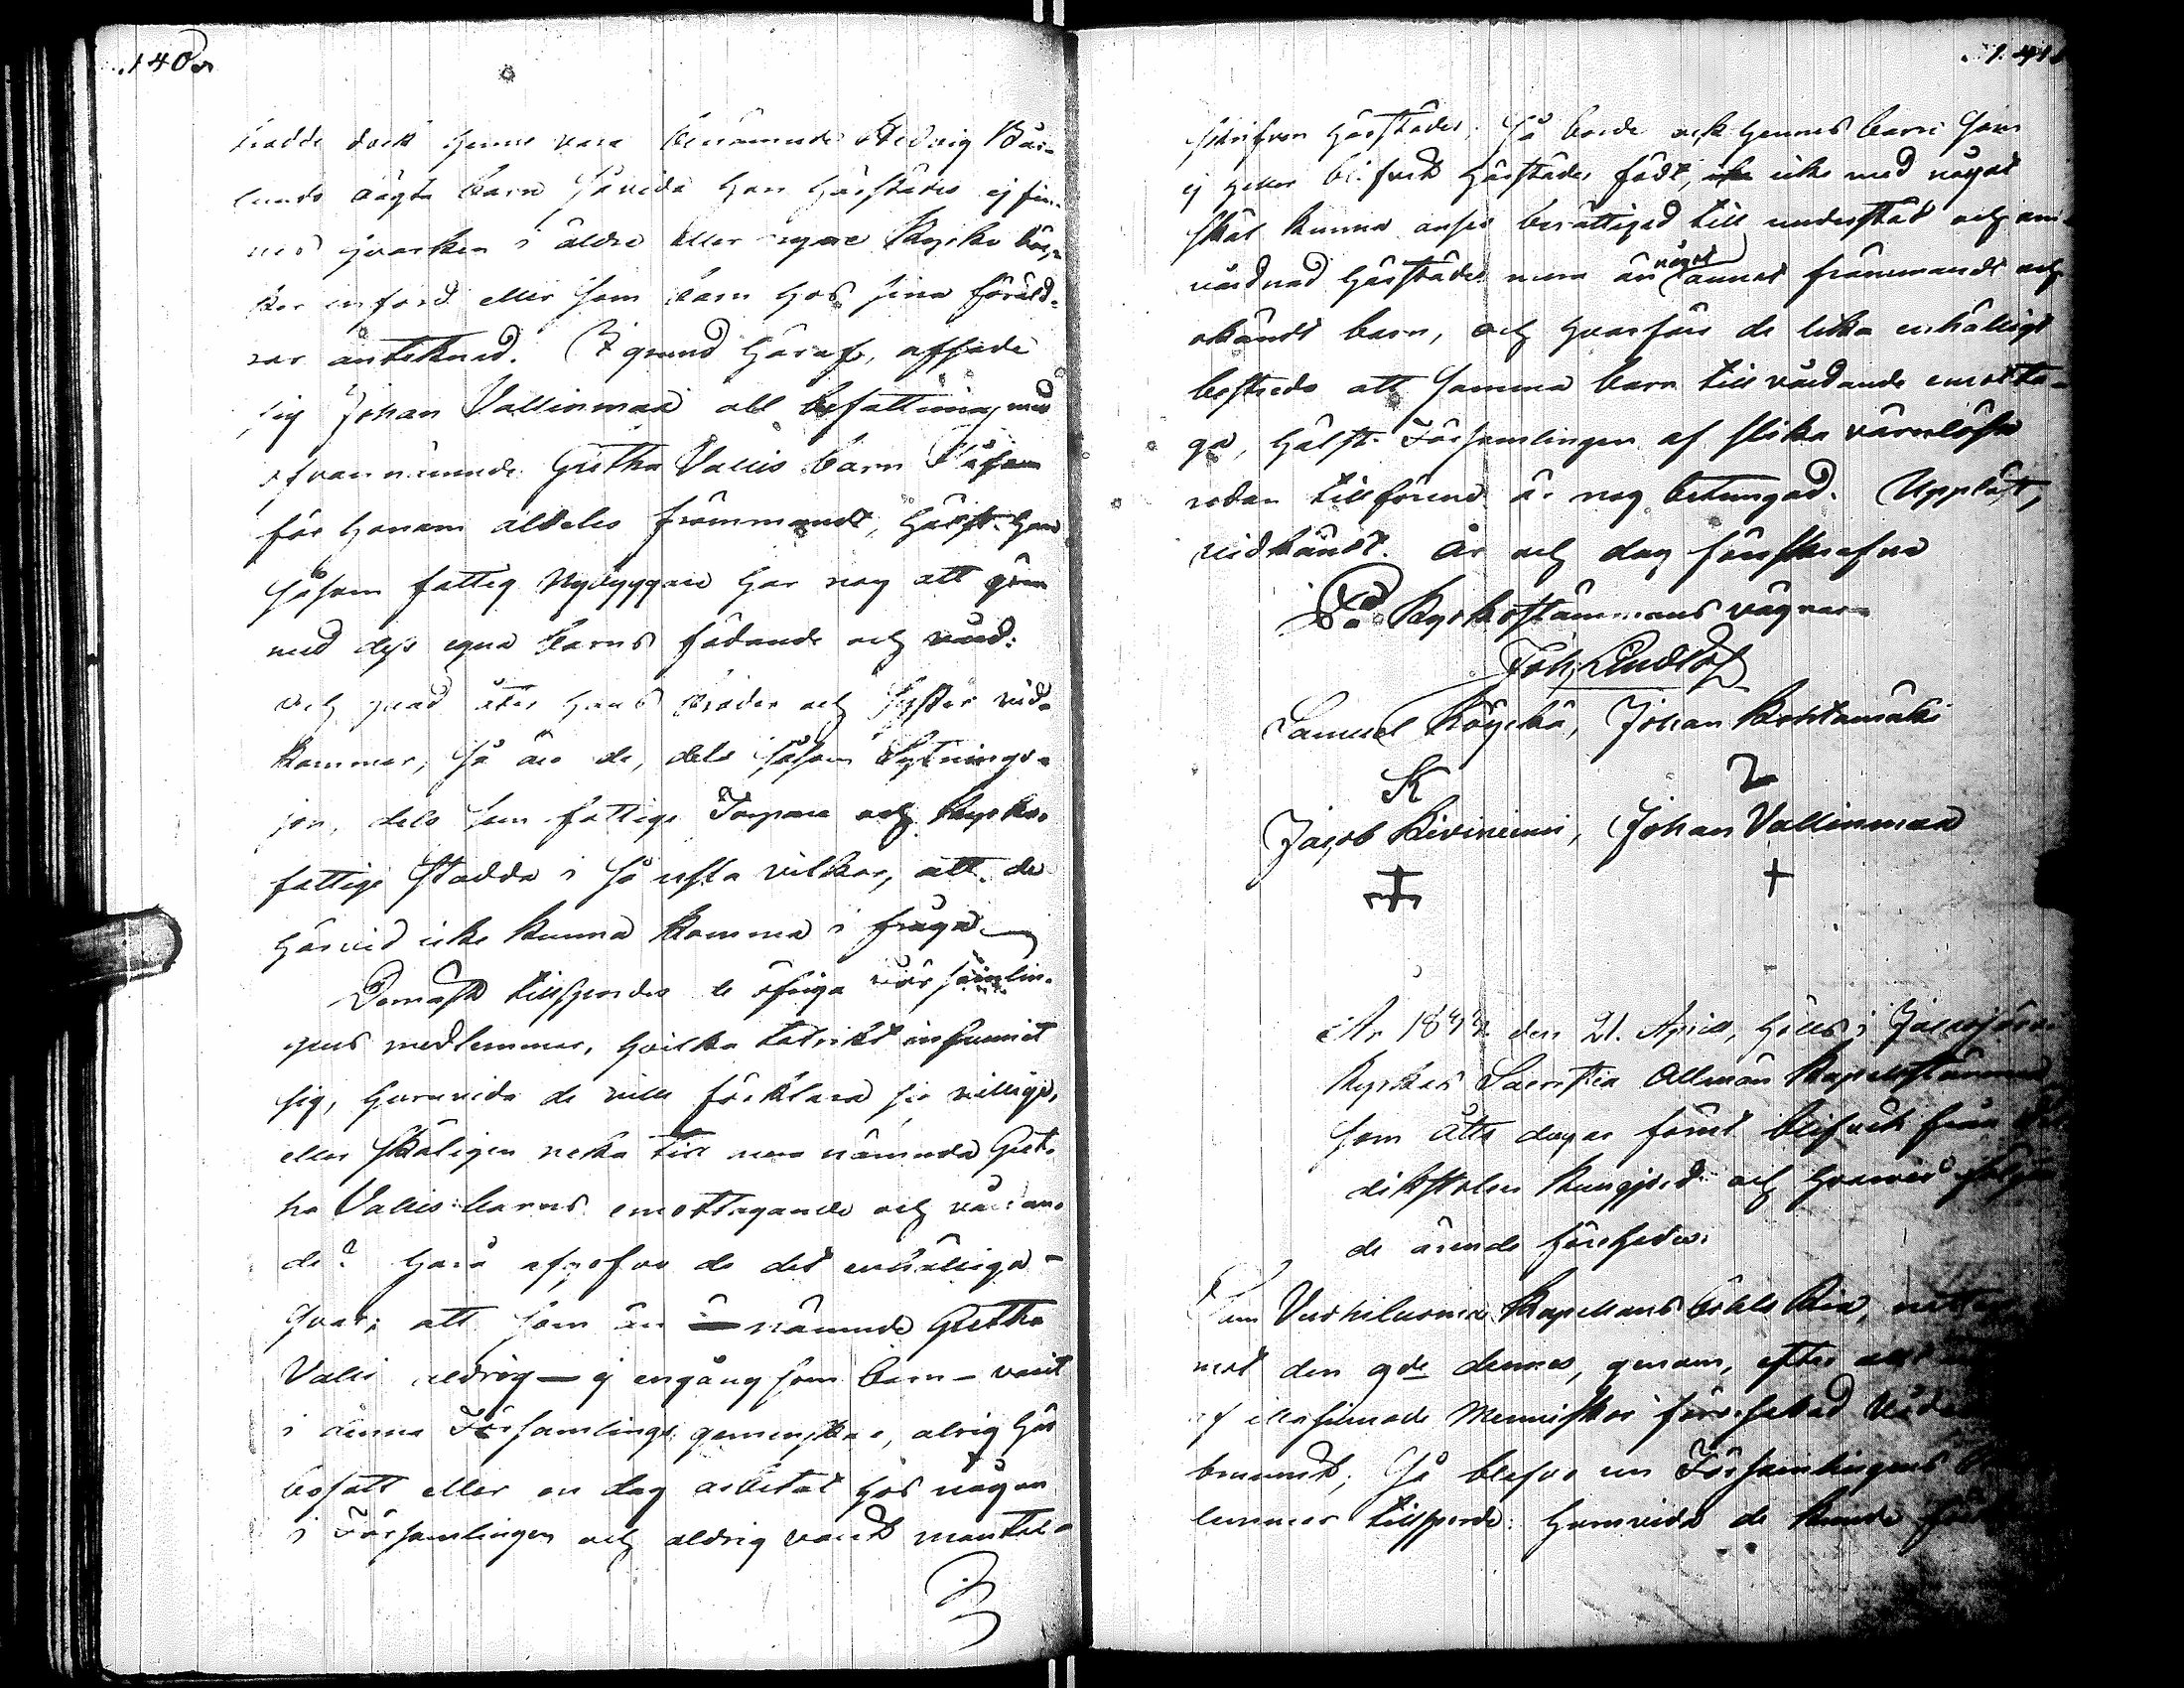 140.
trodde dock henne vara benämnde Hedvig Bär-
lunds oägta barn såvida hon härstädes ej fin-
nes hvarken i äldre eller nyare Kyrko böc-
ker införd eller som barn hos sina föräld-
rar antecknad. I grund häraf, afsade
sig Johan Vallinmaa all befattning med
ofvannämnde Gretha Vallis barn såsom
för honom aldeles främmande, hälst han
såsom fattig Nybyggare har nog att göra
med dess egna barns födande och vård:
och hvad åter hans bröder och syster vid-
kommer, så äro de, dels såsom Sytnings-
jon, dels som fattige Torpare och Kyrko-
fattige stadda i så usla vilkor, att de
härvid icke kunna komma i fråga.
Dernäst tillspordes de öfriga Församlin-
gens medlemmar, hvilka talrikt infunnit
sig, huruvida de ville förklara sig villige,
eller skäligen neka till mera nämnda Gret-
ha Vallis barns emottagande och vårdan-
de? Härå afgofvo de det enhälliga
svar; att som än nämnde Gretha
Valli aldrig — ej engång som barn — varit
i denna Församlings gemenskap, aldrig här
bosatt eller en dag arbetat hos någon
i Församlingen och aldrig varit mantals-
141.
skrifven härstädes, så borde ock hennes barn som
ej heller blifvit härstädes födt, icke med något
skäl kunna anses berättigad till understöd och om-
vårdnad härstädes mera än något annat främmande och
okändt barn, och hvarföre de lika enhälligt
bestredo att samma barn till vårdande emotta-
ga, hälst Församlingen af slika värnlösa
redan tillförene är nog betungad. Uppläst,
vidkändt. År och dag förskrefne
På Kyrkostämmans vägnar
Joh. Lindlöf
Samuel Köykkä, Johan Kohtamäki
K 2
Jacob Kiviniemi, Johan Vallinmaa
+
År den 21. April, hölls i
Kyrkas Sacristia Allmän Kapellstämma
som åtta dagar förut blifvit från
dikstolen kungjord och hvarvid följan-
de ärende förehades.
Som Kapellans Boställe natten
mot den 9de dennes, genom, efter
af illasinnade Menniskor förorsakad Våda
brunnit; så blefvo nu Församlingens
lemmar tillsporde: huruvida de kunde